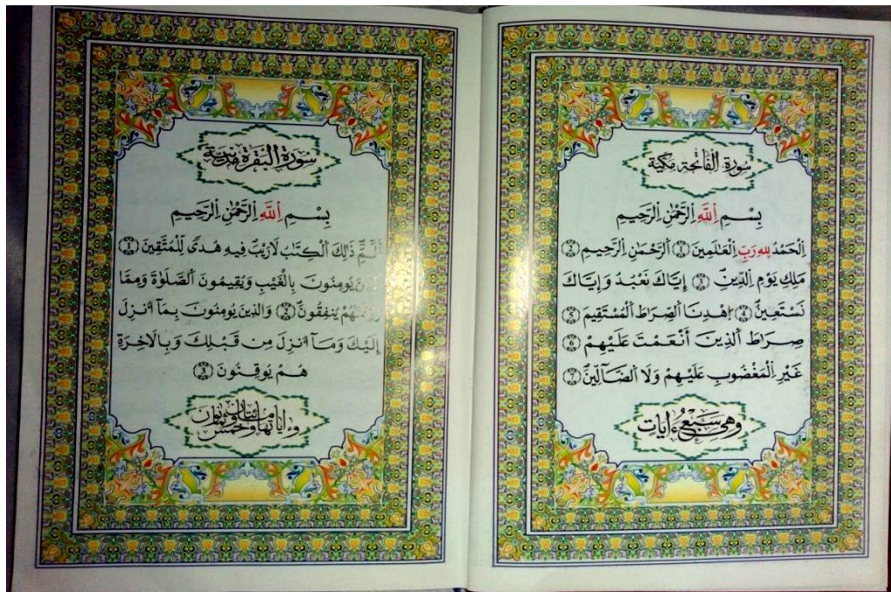 سُورَةُ الْفَاتِحَةِ مَكِّيَّة
بِسْمِ اِللَّهِ اِلرَّحْمَٰنِ اِلرَّحِيمِ
اِلْحَمْدُ لِلهِ رَبِّ اِلْعَٰلَمِينَ اَلرَّحْمَٰنِ اِلرَّحِيمِ
مَلِكِ يَوْمِ اِلدِّينِ إِيَّاكَ نَعْبُدُ وَإِيَّاكَ
نَسْتَعِينُ اِهْدِنَا اَلصِّرَاطَ اَلْمُسْتَقِيمَ
صِرَاطَ اَلذِينَ أَنْعَمْتَ عَلَيْهِمْ
غَيْرِ اِلْمَغْضُوبِ عَلَيْهِمْ وَلَا اَلضَّآلِّينَ
وَهِيَ سَبْعُ ءَايَات
سُورَةُ الْبَقَرَةِ مَدَنِيَّة
بِسْمِ اِللَّهِ اِلرَّحْمَٰنِ اِلرَّحِيمِ
أَلَٓمِّٓ ذَٰلِكَ اَلْكِتَٰبُ لَا رَيْبَ فِيهِ هُدىً لِّلْمُتَّقِينَ
يُومِنُونَ بِالْغَيْبِ وَيُقِيمُونَ اَلصَّلَوٰةَ وَمِمَّا
يُنفِقُونَ وَالذِينَ يُومِنُونَ بِمَآ أُنزِلَ
إِلَيْكَ وَمَآ أُنزِلَ مِن قَبْلِكَ وَبِالَاخِرَةِ
هُمْ يُوقِنُونَ
وَءَايَاتُهَا مِائَتَانِ وَخَمْسٌ وَثَمَانُونَ